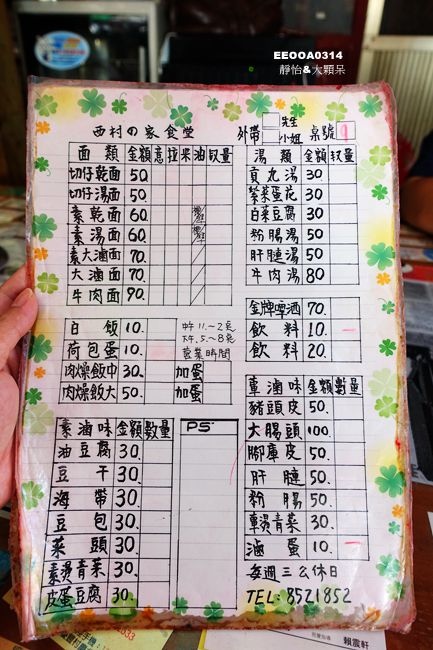 EEOOA0314
靜怡&大顆呆
西村の家食堂
外帶 先生 小姐 桌號 9
面類 金額 意 拉 米 油 數量
切仔乾面 50.
切仔湯面 50.
素乾面 60.
素湯面 60.
素大滷面 70.
大滷面 70.
牛肉面 90.
白飯 10.
荷包蛋 10.
肉燥飯中 30. 加蛋
肉燥飯大 50. 加蛋
中午11.~2點
下午.5~8點
營業時間
素滷味 金額 數量
油豆腐 30.
豆干 30.
海帶 30.
豆包 30.
菜頭 30.
素燙青菜 30.
皮蛋豆腐 30
PS
湯類 金額 數量
貢丸湯 30
紫菜蛋花 30
白菜豆腐 30
粉腸湯 50
肝腱湯 50
牛肉湯 80
金牌啤酒 70.
飲料 10.
飲料 20.
葷滷味 金額 數量
豬頭皮 50.
大腸頭 100.
腳庫皮 50.
肝腱 50.
粉腸 50.
葷燙青菜 30
滷蛋 10.
每週三公休日
TEL: 8521852
賴震軒